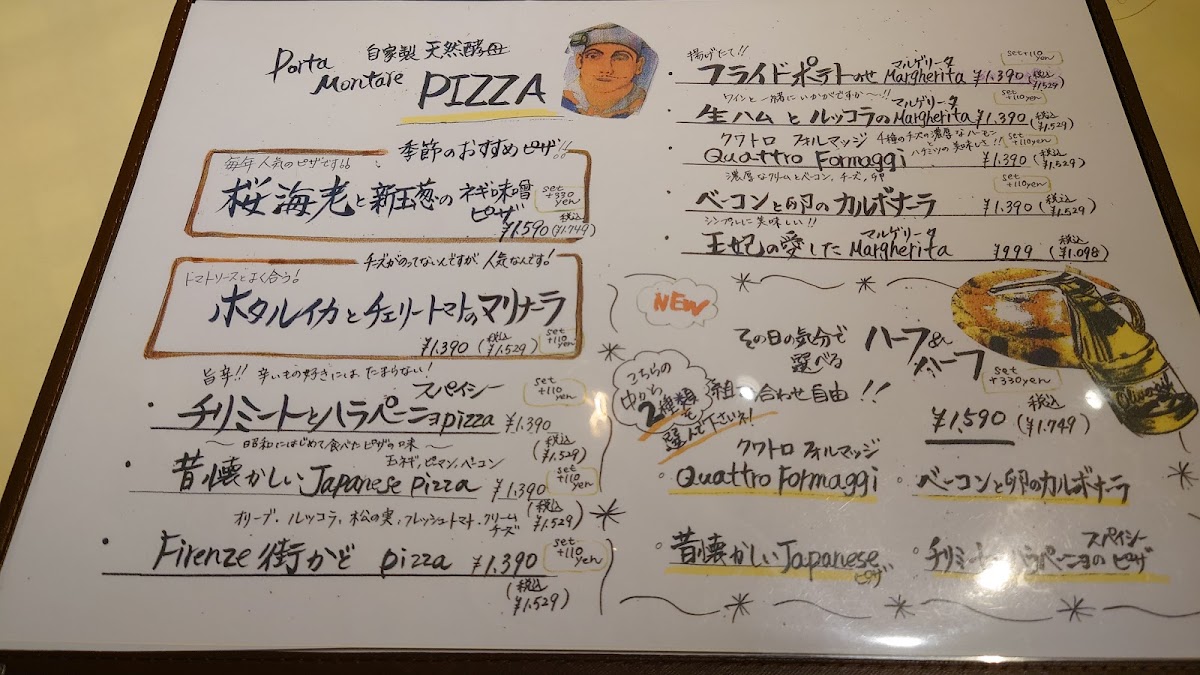 Porta
Montare
自家製 天然酵母
PIZZA
季節のおすすめピザ!!
毎年 人気のピザです!!
桜海老と新玉葱のネギ味噌
ピザ
set
+330
yen
¥1.590 (税込 ¥1.749)
チーズがのってないんですが 人気なんです!
トマトソースとよく合う!
ホタルイカとチェリートマトのマリナーラ
¥1.390 (税込 ¥1.529)
set
+110
yen
旨辛!! 辛いもの好きにはたまらない!
スパイシー
チリミートとハラペーニョpizza ¥1.390
(税込 ¥1.529)
set
+110
yen
〜昭和にはじめて食べたピザの味〜
玉ネギ,ピマン,ベーコン
昔懐かしいJapanese pizza ¥1.390
(税込 ¥1.529)
set
+110
yen
オリーブ.ルッコラ,松の実,フレッシュトマト.クリーム
チーズ
Firenze街かど pizza ¥1.390
(税込 ¥1.529)
set
+110
yen
揚げたて!!
マルゲリータ
フライドポテトのせ Margherita ¥1.390 (税込 ¥1.529)
set+110
yen
ワインと一緒にいかがですか〜!!
マルゲリータ
生ハムとルッコラのMargherita ¥1.390 (税込 ¥1.529)
set
+110yen
クワトロ フォルマッジ
4種のチーズの濃厚なハーモニー
とハチミツの美味しさ!!
Quattro Formaggi ¥1.390 (税込 ¥1.529)
set
+110yen
濃厚なクリームとベーコン,チーズ,
ベーコンと卵のカルボナーラ ¥1.390 (税込 ¥1.529)
set
+110yen
シンプルに美味しい!!
マルゲリータ
王妃の愛したMargherita ¥999 (税込 ¥1.098)
NEW
その日の気分で
選べる
ハーフ&
ハーフ
set
+330yen
こちらの
中から
2種類
を
選んで下さいネ!
組み合わせ自由!!
¥1,590 (税込 ¥1.749)
クワトロ フォルマッジ
Quattro Formaggi
ベーコンと卵のカルボナーラ
昔懐かしいJapanese
ピザ
スパイシー
チリミートとハラペーニョのピザ